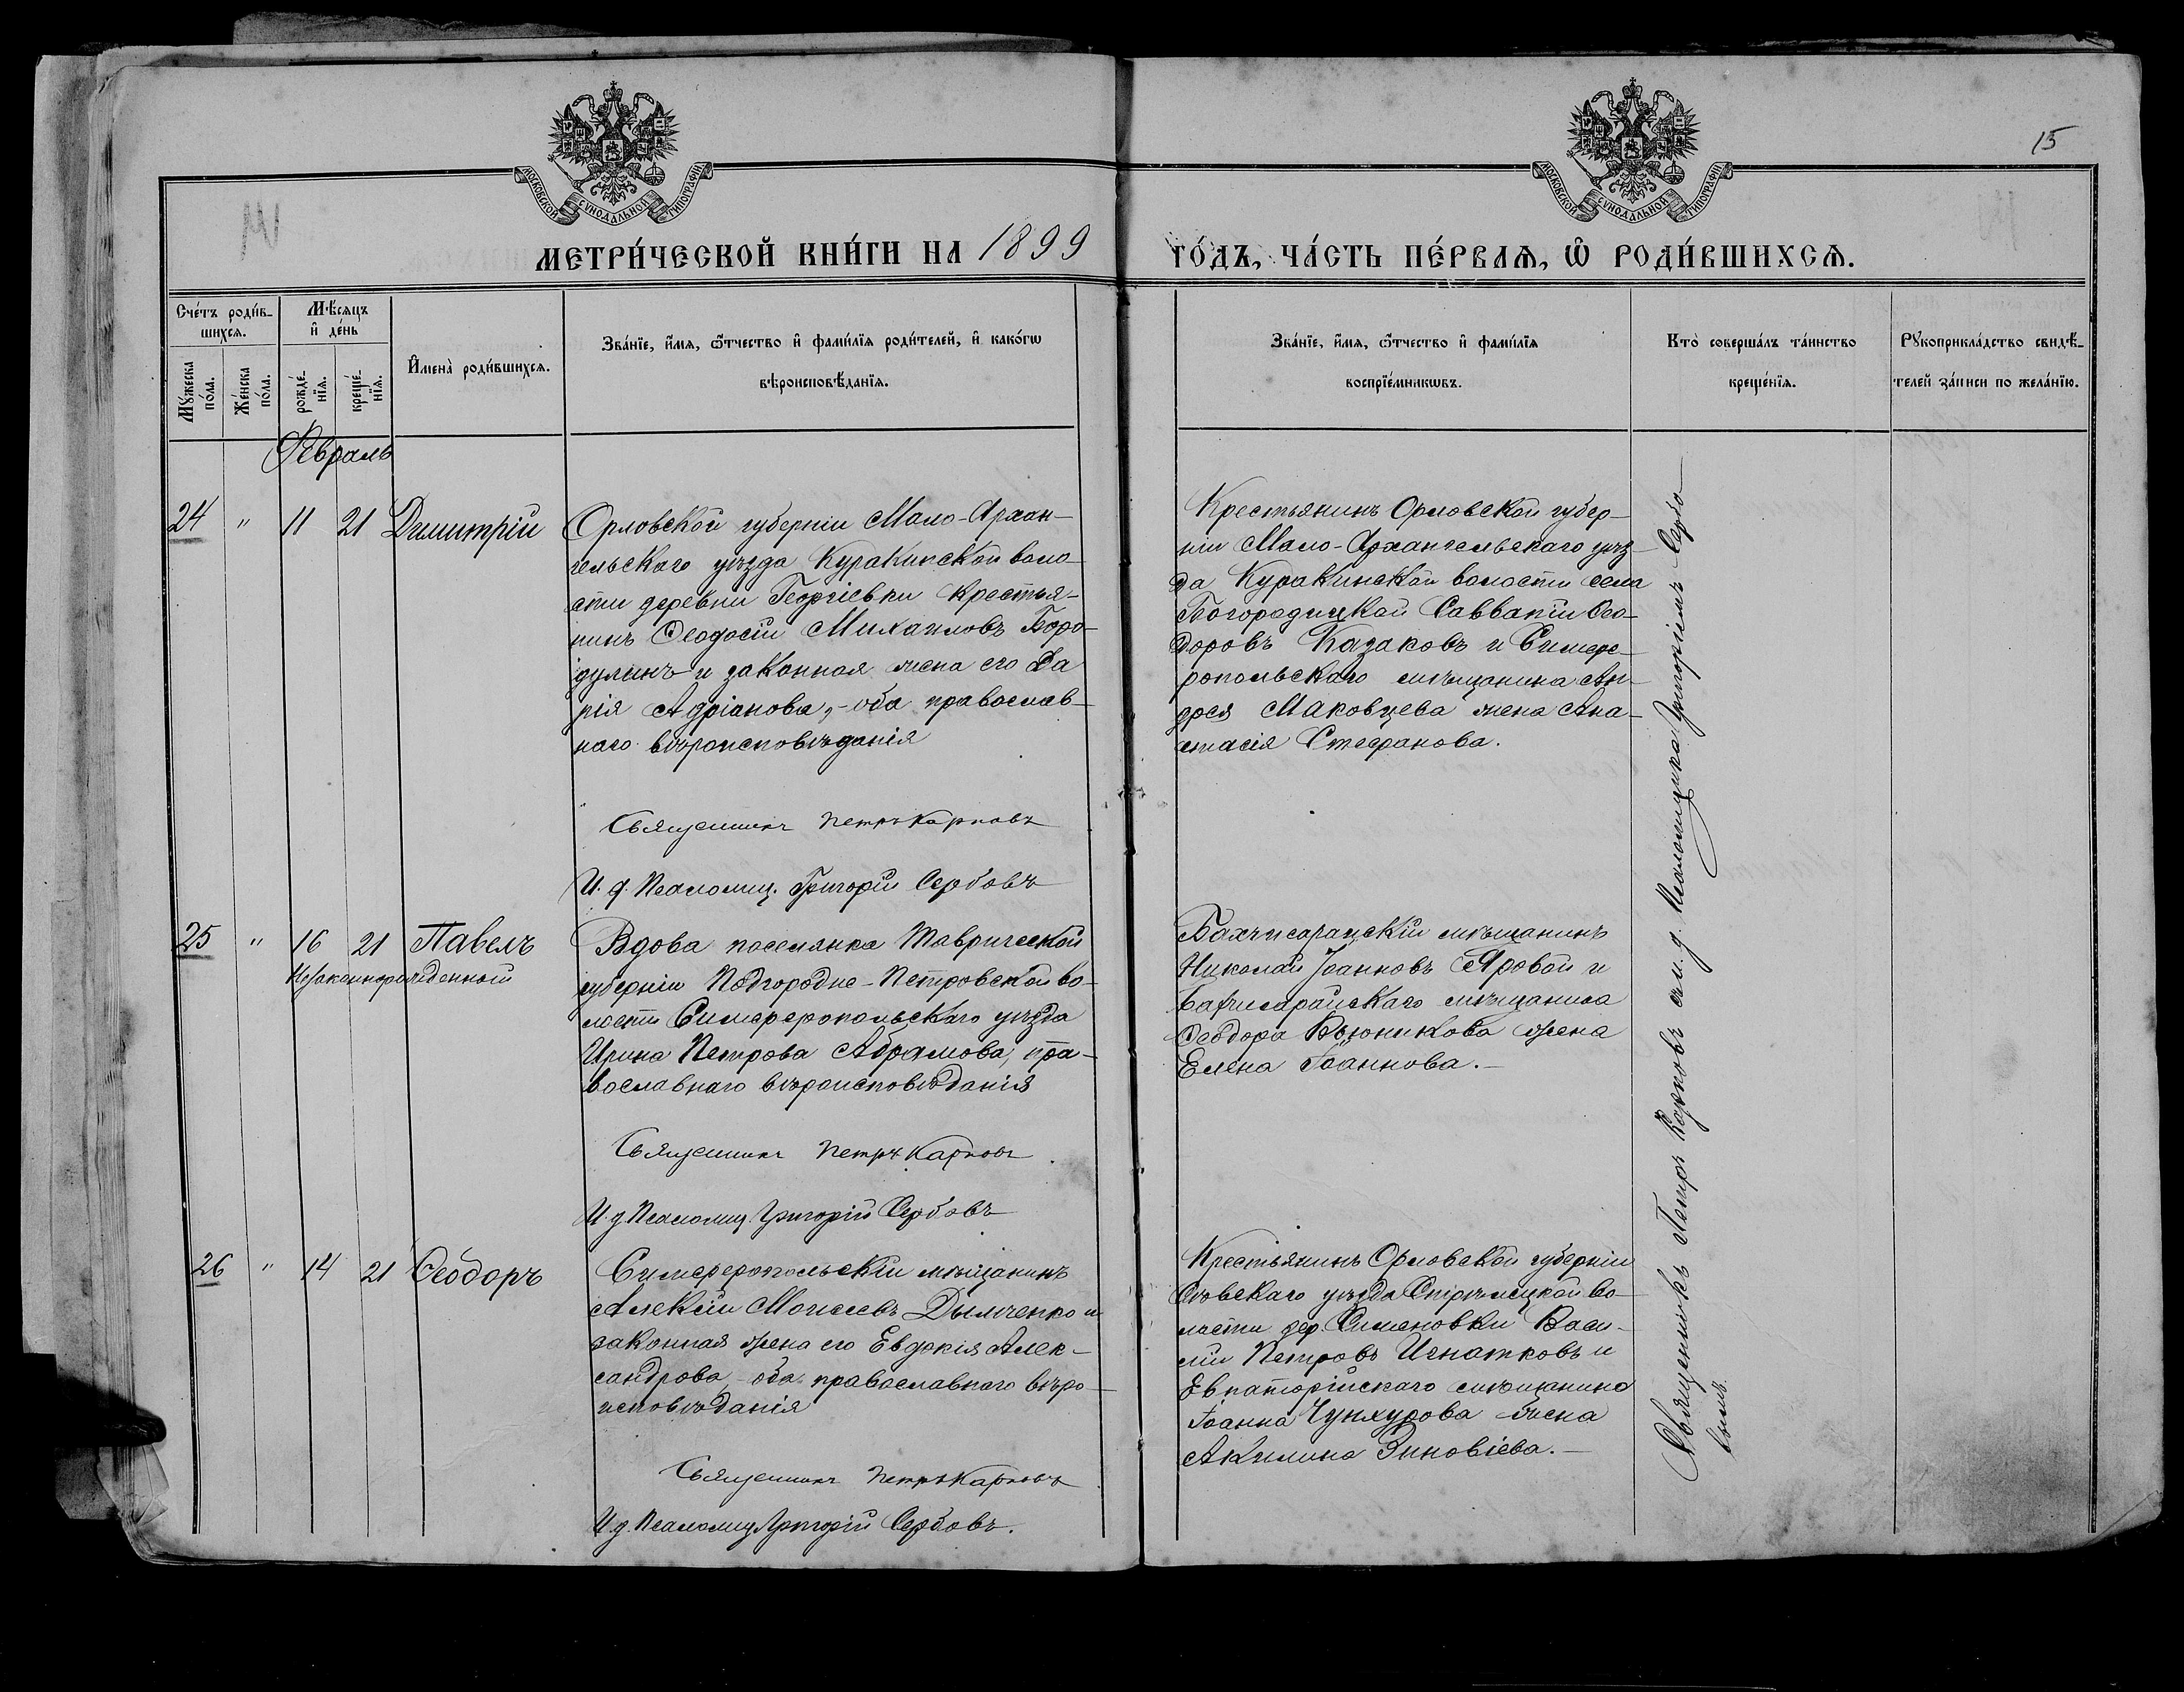 15
МОСКОВСКОЙ СѴНОДАЛЬНОЙ ТИПОГРАФІИ
МОСКОВСКОЙ СѴНОДАЛЬНОЙ ТИПОГРАФІИ
МЕТРИ́ЧЕСКОЙ КНИ́ГИ НА 1899 ГО́ДЪ, ЧА́СТЬ ПЕ́РВАѦ, Ѡ҆ РОДИ́ВШИХСѦ.
Сче́тъ роди́в-
шихсѧ.
Мꙋ́жеска по́ла.
Же́нска по́ла.
Мѣ́сѧцъ
и҆ де́нь
рожде́-
нїѧ.
креще́-
нїѧ.
И҆мена̀ роди́вшихсѧ.
Зва́нїе, и҆́мѧ, ѻ҆́тчество и҆ фами́лїѧ роди́телей, и҆ како́гѡ
вѣроисповѣ́данїѧ.
Зва́нїе, и҆́мѧ, ѻ҆́тчество и҆ фами́лїѧ
воспрїе́мникѡвъ.
Кто̀ соверша́лъ та́инство
креще́нїѧ.
Рꙋкоприкла́дство свидѣ́-
телей за́писи по жела́нїю.
Февраль
24 " 11 21 Димитрій
Орловской губерніи Мало-Архан-
гельскаго уѣзда Куракинской воло-
сти деревни Георгіевки крестья-
нинъ Ѳеодосій Михаиловъ Боро-
дулинъ и законная жена его Да
рія Адріанова, - оба православ-
наго вѣроисповѣданія
Священникъ Петръ Карповъ
И. д. Псаломщ. Григорій Сербовъ
Крестьянинъ Орловской губер-
ніи Мало-Архангельскаго уѣз-
да Куракинской волости села
Богородицкой Савватій Ѳео-
доровъ Казаковъ и Симфе-
ропольскаго мѣщанина Ан-
дрея Маковцева жена Ана-
стасія Стефанова.
25 " 16 21 Павелъ
Незаконнорожденный
Вдова поселянка Таврической
губерніи Подгородне-Петровской во-
лости Симферопольскаго уѣзда
Ирина Петрова Абрамова, пра-
вославнаго вѣроисповѣданія
Священникъ Петръ Карповъ
И. д. Псаломщ. Григорій Сербовъ
Бахчисарайскій мѣщанинъ
Николай Іоанновъ Яровой и
Бахчисарайскаго мѣщанина
Ѳеодора Вьюникова жена
Елена Іоаннова.-
26 " 14 21 Ѳеодоръ
Симферопольскій мѣщанинъ
Алексій Моисеевъ Дымченко и
законная жена его Евдокія Алек-
сандрова, - оба православнаго вѣро-
исповѣданія
Священникъ Петръ Карповъ
И. д. Псаломщ. Григорій Сербовъ.
Крестьянинъ Орловской губерніи
Сѣвскаго уѣзда Стрѣлецкой во-
лости дер. Семеновки Васи-
лій Петровъ Игнатковъ и
Евпаторійскаго мѣщанина
Іоанна Чунхурова жена
Акилина Зиновіева.-
Священникъ Петръ Карповъ съ и. д. Псаломщика Григоріемъ Сербо-
вымъ.